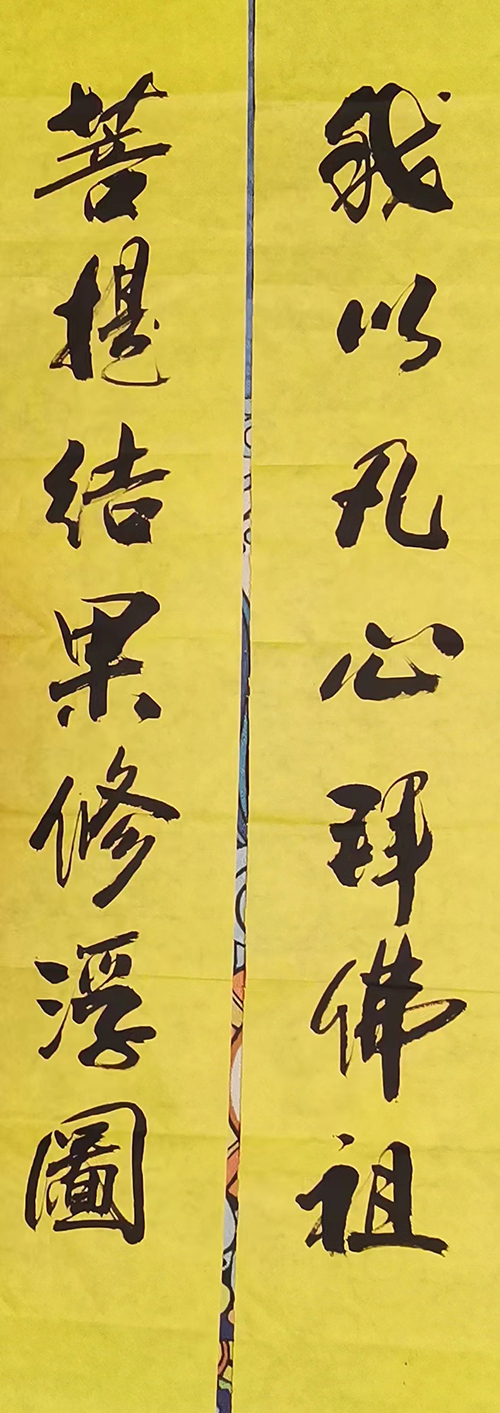 我以凡心拜佛祖
菩提结果修浮圖